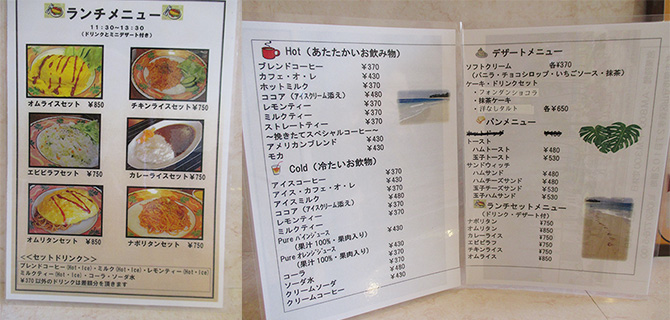 ランチメニュー
11:30~13:30
(ドリンクとミニデザート付き)
オムライスセット ¥850
チキンライスセット ¥750
エビピラフセット ¥750
カレーライスセット ¥750
オムリタンセット ¥850
ナポリタンセット ¥750
<<セットドリンク>>
ブレンドコーヒー(Hot・Ice)・ミルク(Hot・Ice)・レモンティー(Hot・Ice)
ミルクティー(Hot・Ice)・コーラ・ソーダ水
¥370以外のドリンクは差額分を頂きます
Hot (あたたかいお飲み物)
ブレンドコーヒー ¥370
カフェ・オ・レ ¥430
ホットミルク ¥370
ココア (アイスクリーム添え) ¥480
レモンティー ¥370
ミルクティー ¥370
ストレートティー ¥370
~挽きたてスペシャルコーヒー~
アメリカンブレンド ¥430
モカ ¥430
Cold (冷たいお飲み物)
アイスコーヒー ¥370
アイス・カフェ・オ・レ ¥430
アイスミルク ¥370
ココア (アイスクリーム添え) ¥480
レモンティー ¥370
ミルクティー ¥370
Pure パインジュース ¥430
(果汁100%・果肉入り)
Pure オレンジジュース ¥430
(果汁100%・果肉入り)
コーラ ¥370
ソーダ水 ¥370
クリームソーダ
クリームコーヒー
デザートメニュー
ソフトクリーム 各¥370
(バニラ・チョコシロップ・いちごソース・抹茶)
ケーキ・ドリンクセット
・フォンダンショコラ
・抹茶ケーキ
・洋なしタルト 各¥650
パンメニュー
トースト
ハムトースト ¥480
玉子トースト ¥530
サンドウィッチ
ハムサンド ¥480
ハムチーズサンド ¥480
玉子チーズサンド ¥530
玉子ハムサンド ¥530
ランチセットメニュー
(ドリンク・デザート付)
ナポリタン ¥750
オムリタン ¥850
カレーライス ¥750
エビピラフ ¥750
チキンライス ¥750
オムライス ¥850